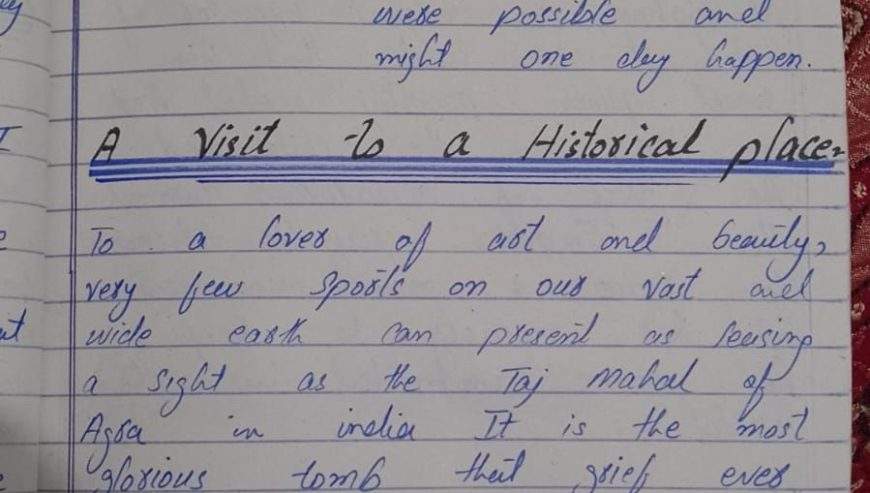 were possible and
might one day happen.
A Visit to a Historical place.
To a lover of art and beauty,
very few sports on our vast and
wide earth can present as
a sight as the Taj mahal of
Agra in india It is the most
glorious tomb that grief ever